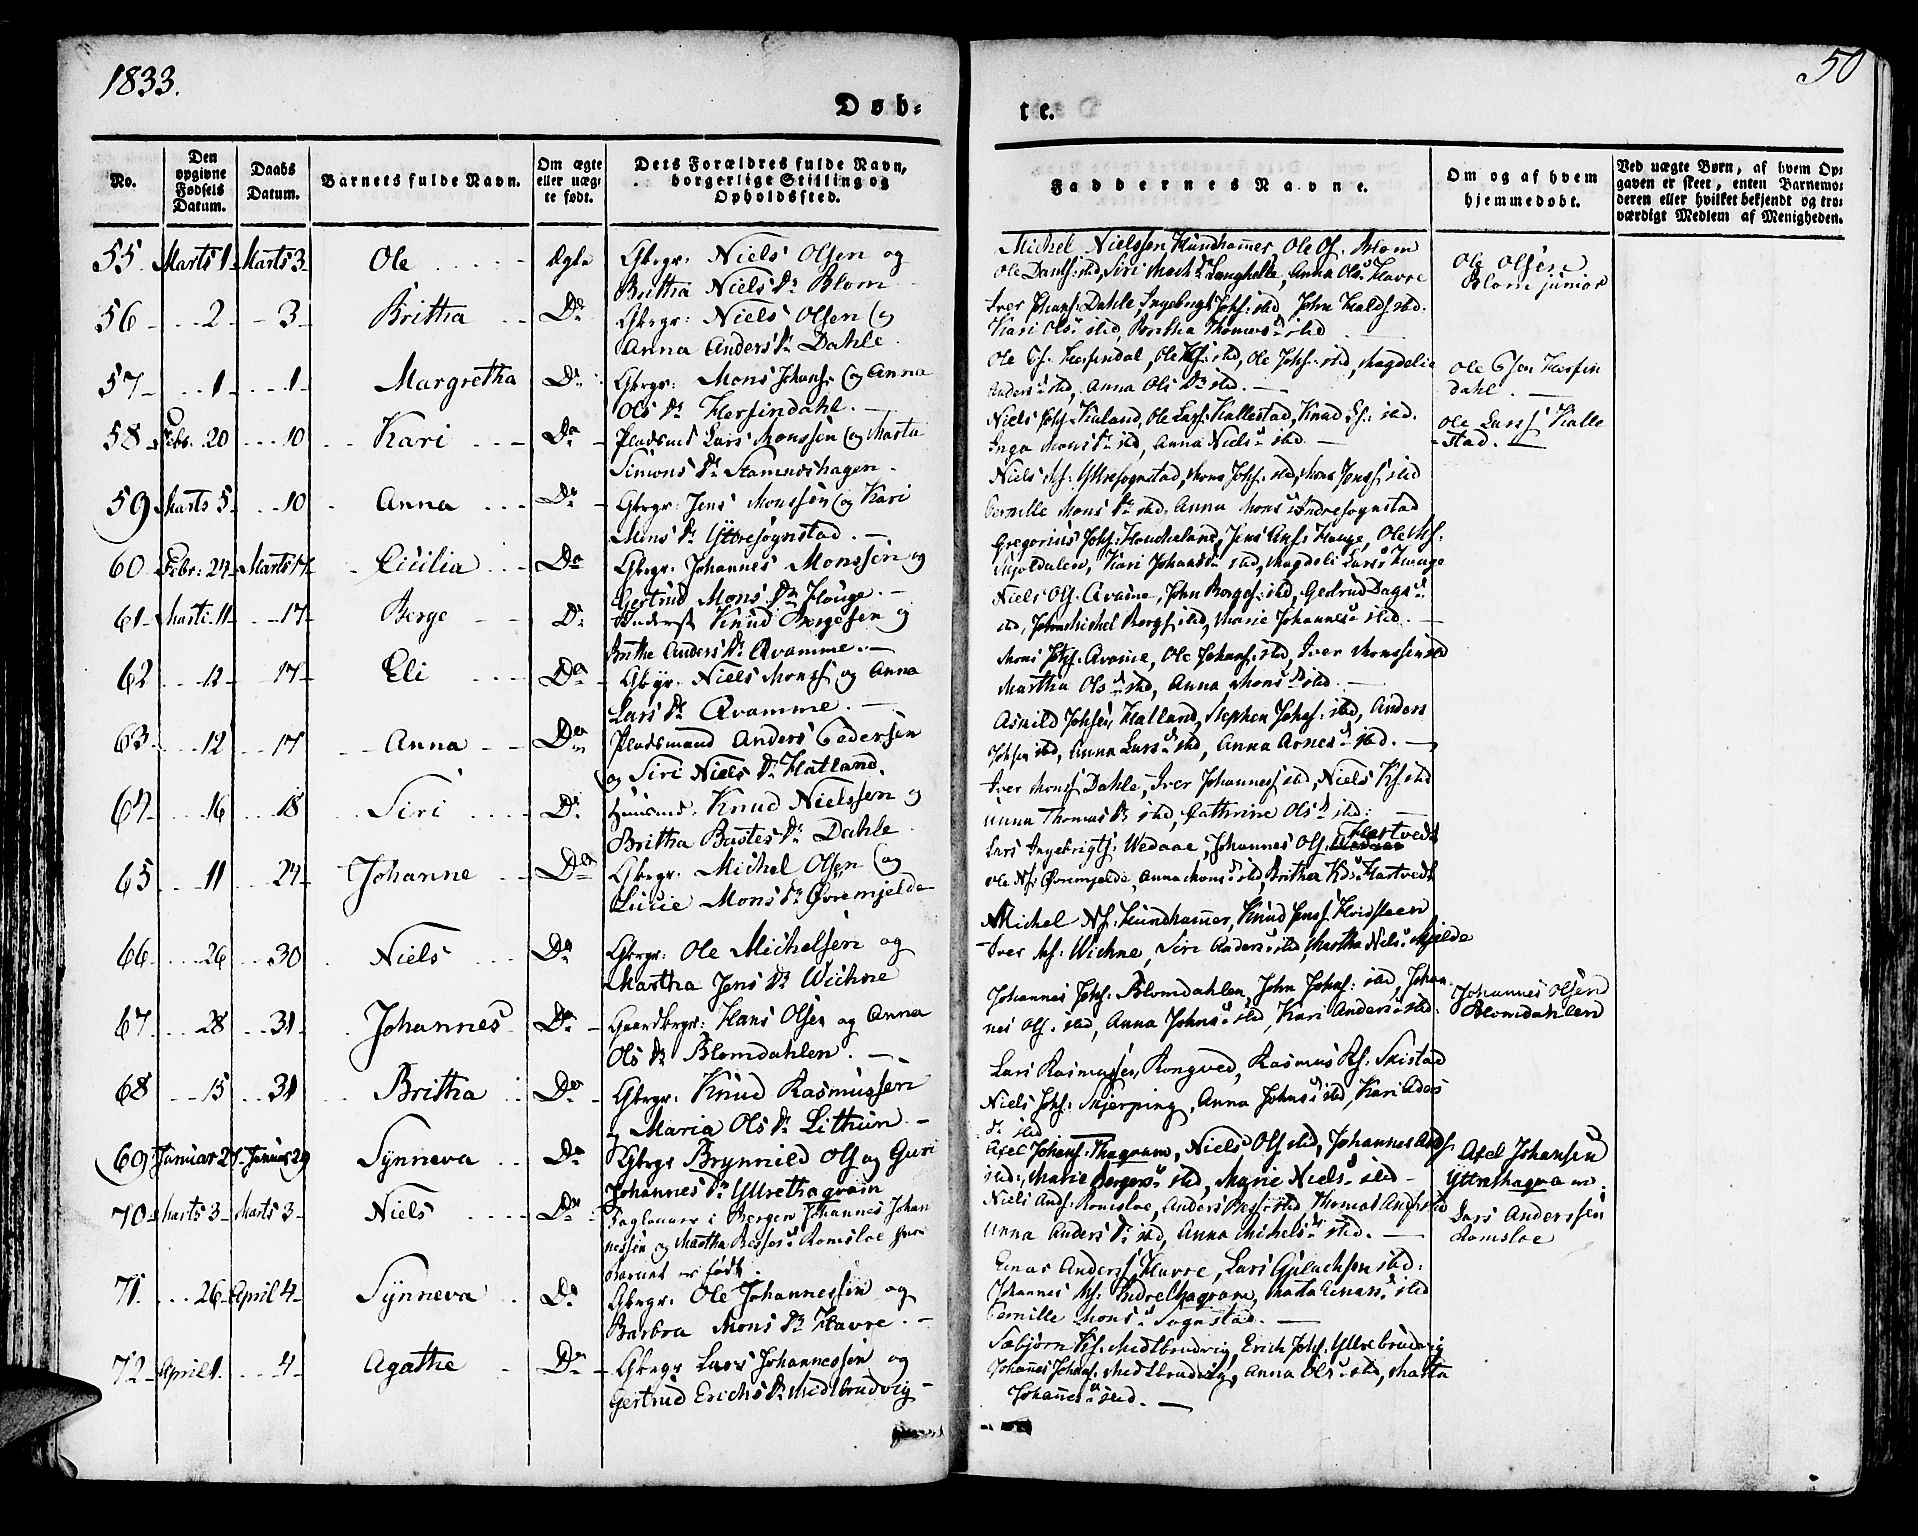 1833.
50
Døb-
te.
No.
Den opgivne Fødsels Datum.
Daabs Datum.
Barnets fulde Navn.
Om ægte eller uægte født.
Dets Forældres fulde Navn, borgerlige Stilling og Opholdssted.
Faddernes Navne.
Om og af hvem hjemmedøbt.
Ved uægte Børn, af hvem Opgaven er skeet, enten Barnemoderen eller hvilket bekjendt og troværdigt Medlem af Menigheden.
55 Marts 1 Marts 3 Ole Ægte Gbrgr: Niels Olsen og
Britha Niels Dr Blom
Michel Nielssen Hundhamer, Ole Ols. Blom
Ole Danls: sted, Siri Mich Dr Langhelle, Anna Ols Dr Havre
Ole Olsen
Blom junior
56 2 3 Britha Do Gbrgr: Niels Olsen og
Anna Anders Dr Dahle
Iver Johans: Dahle, Ingebrigt Johs: sted, John Halds sted
Kari Ols Dr sted, Britha Thomas Dr sted
57 1 1 Margretha Do Gbrgr: Mons Johans: og Anna
Ols Dr Herfindahl.
Ole Ols. Herfindal, Ole sted, Ole Johs: sted, Magdelie
Anders Dr sted, Anna Ols Dr sted.
Ole Olsen Herfin
dahl
58 Febr: 20 10 Kari Do Pladsmd Lars Monssen og Marta
Simons Dr Stamneshagen.
Niels Johs Hiuland, Ole Larss: Kallestad, Knud sted.
Inga Mons Dr sted, Anna Niels Dr sted
Ole Larss Kalle
stad.
59 Marts 5 10 Anna Do Gbrgr: Jens Monssen og Kari
Mons Dr Yttresognstad.
Niels Ms: Yttresognstad, Mons Johs: sted, Mons Jenss sted
Pernille Mons Dr sted, Anna Mons Dr Indresognstad
60 Febr: 24 Marts 17 Cicilia Do Gbrgr: Johannes Monssen og
Gertrud Mons Dr Houge.
Gregorius Johs: Houcheland, Jens Ands: Houge, Ole Ms:
Skjoldalen, Kari Johans Dr sted, Magdeli Lars Dr Houge
61 Marti 11 17 Berge Do Knud Bergesen og
Britha Anders Dr Qvamme.
Niels Ols. Qvamme, John Berges: sted, Gertrud Dags Dr
sted, Michel Bergs sted, Marie Johannes Dr sted.
62 12 17 Eli Do Gbrgr. Niels Monss og Anna
Lars Dr Qvamme.
Mons Johs: Qvamme, Ole Johans: sted, Iver Monssen sted
Martha Ols Dr sted, Anna Mons Dr sted.
63 12 17 Anna Do Pladsmand Anders Pedersen
og Siri Niels Dr Hatland.
Askild Johsen Hatland, Stephen Johs: sted, Anders
Johsen sted, Anna Lars Dr sted, Anna Arnes Dr sted.
64 16 18 Siri Do Huusmd: Knud Nielssen og
Britha Bastes Dr Dahle.
Iver Monss Dahle, Iver Johanness sted, Niels Ks sted
Anna Thomas Dr sted, Cathrine Ols Dr sted.
65 11 24 Johanne Do Gbrgr: Michel Olsen og
Lucie Mons Dr Øvremjelde
Lars Ingebrigts: Wedaae, Johannes Ols. Hartvedt
Ole Ns: Øvremjelde, Anna Mons Dr sted, Britha Kds Dr Hartvedt
66 26 30 Niels Do Gbrgr: Ole Michelsen og
Martha Jens Dr Wichne
Michel Ns. Hundhamer, Knud Jenss Hvidsteen
Iver Ms: Wichne, Siri Anders Dr sted, Martha Niels Dr Mjelde
67 28 31 Johannes Do Gaardbrgr: Hans Olsen og Anna
Ols Dr Blomdahlen.
Johannes Johs: Blomdahlen, John Johns: sted, Johan
nes Ols. sted, Anna Johns Dr sted, Kari Anders Dr sted.
Johannes Olsen
Blomdahlen
68 15 31 Britha Do Gbrgr: Knud Rasmussen
og Maria Ols Dr Lithun.
Lars Rasmussen Rongved, Rasmus Rs: Skistad
Niels Johs: Skjerping, Anna Johns Dr sted, Kari Adas
Dr sted
69 Januar 27 Januar 29 Synneva Do Gbrgr Brynnild Ols og Guri
Johannes Dr Yttrethagram
Axel Johans: Thagram, Niels Ols sted, Johannes Axels
sted: Marie Bergers Dr sted, Marie Niels Dr sted
Axel Johansen
Yttrethagram.
70 Marts 3 Marts 3 Niels Do Taglønner i Bergen Johannes Johan
nessen og Martha Bessas Dr Romsloe hvor
Barnet er født.
Niels Ands: Romsloe, Anders Bess: sted, Thomas Ands sted
Anna Anders Dr sted, Anna Michels Dr sted.
Lars Anderssen
Romsloe
71 26 April 4 Synneva Do Gbrgr: Ole Johannessen og
Barbra Mons Dr Havre.
Einar Anderss Havre, Lars Gulachsen sted.
Johannes Ms. Indrethagram, Mada Einars Dr sted
Pernille Mons Dr Sognstad.
72 April 1 4 Agathe Do Gbrgr Lars Johannessen og
Gertrud Erichs Dr Midtbrudvig
Sæbjørn Ks: Midtbrudvig, Erich Johs. Yttrebrudvig
Johanes Johans: Midtbrudvig, Anna Ols Dr sted, Matta
Johanes Dr sted.